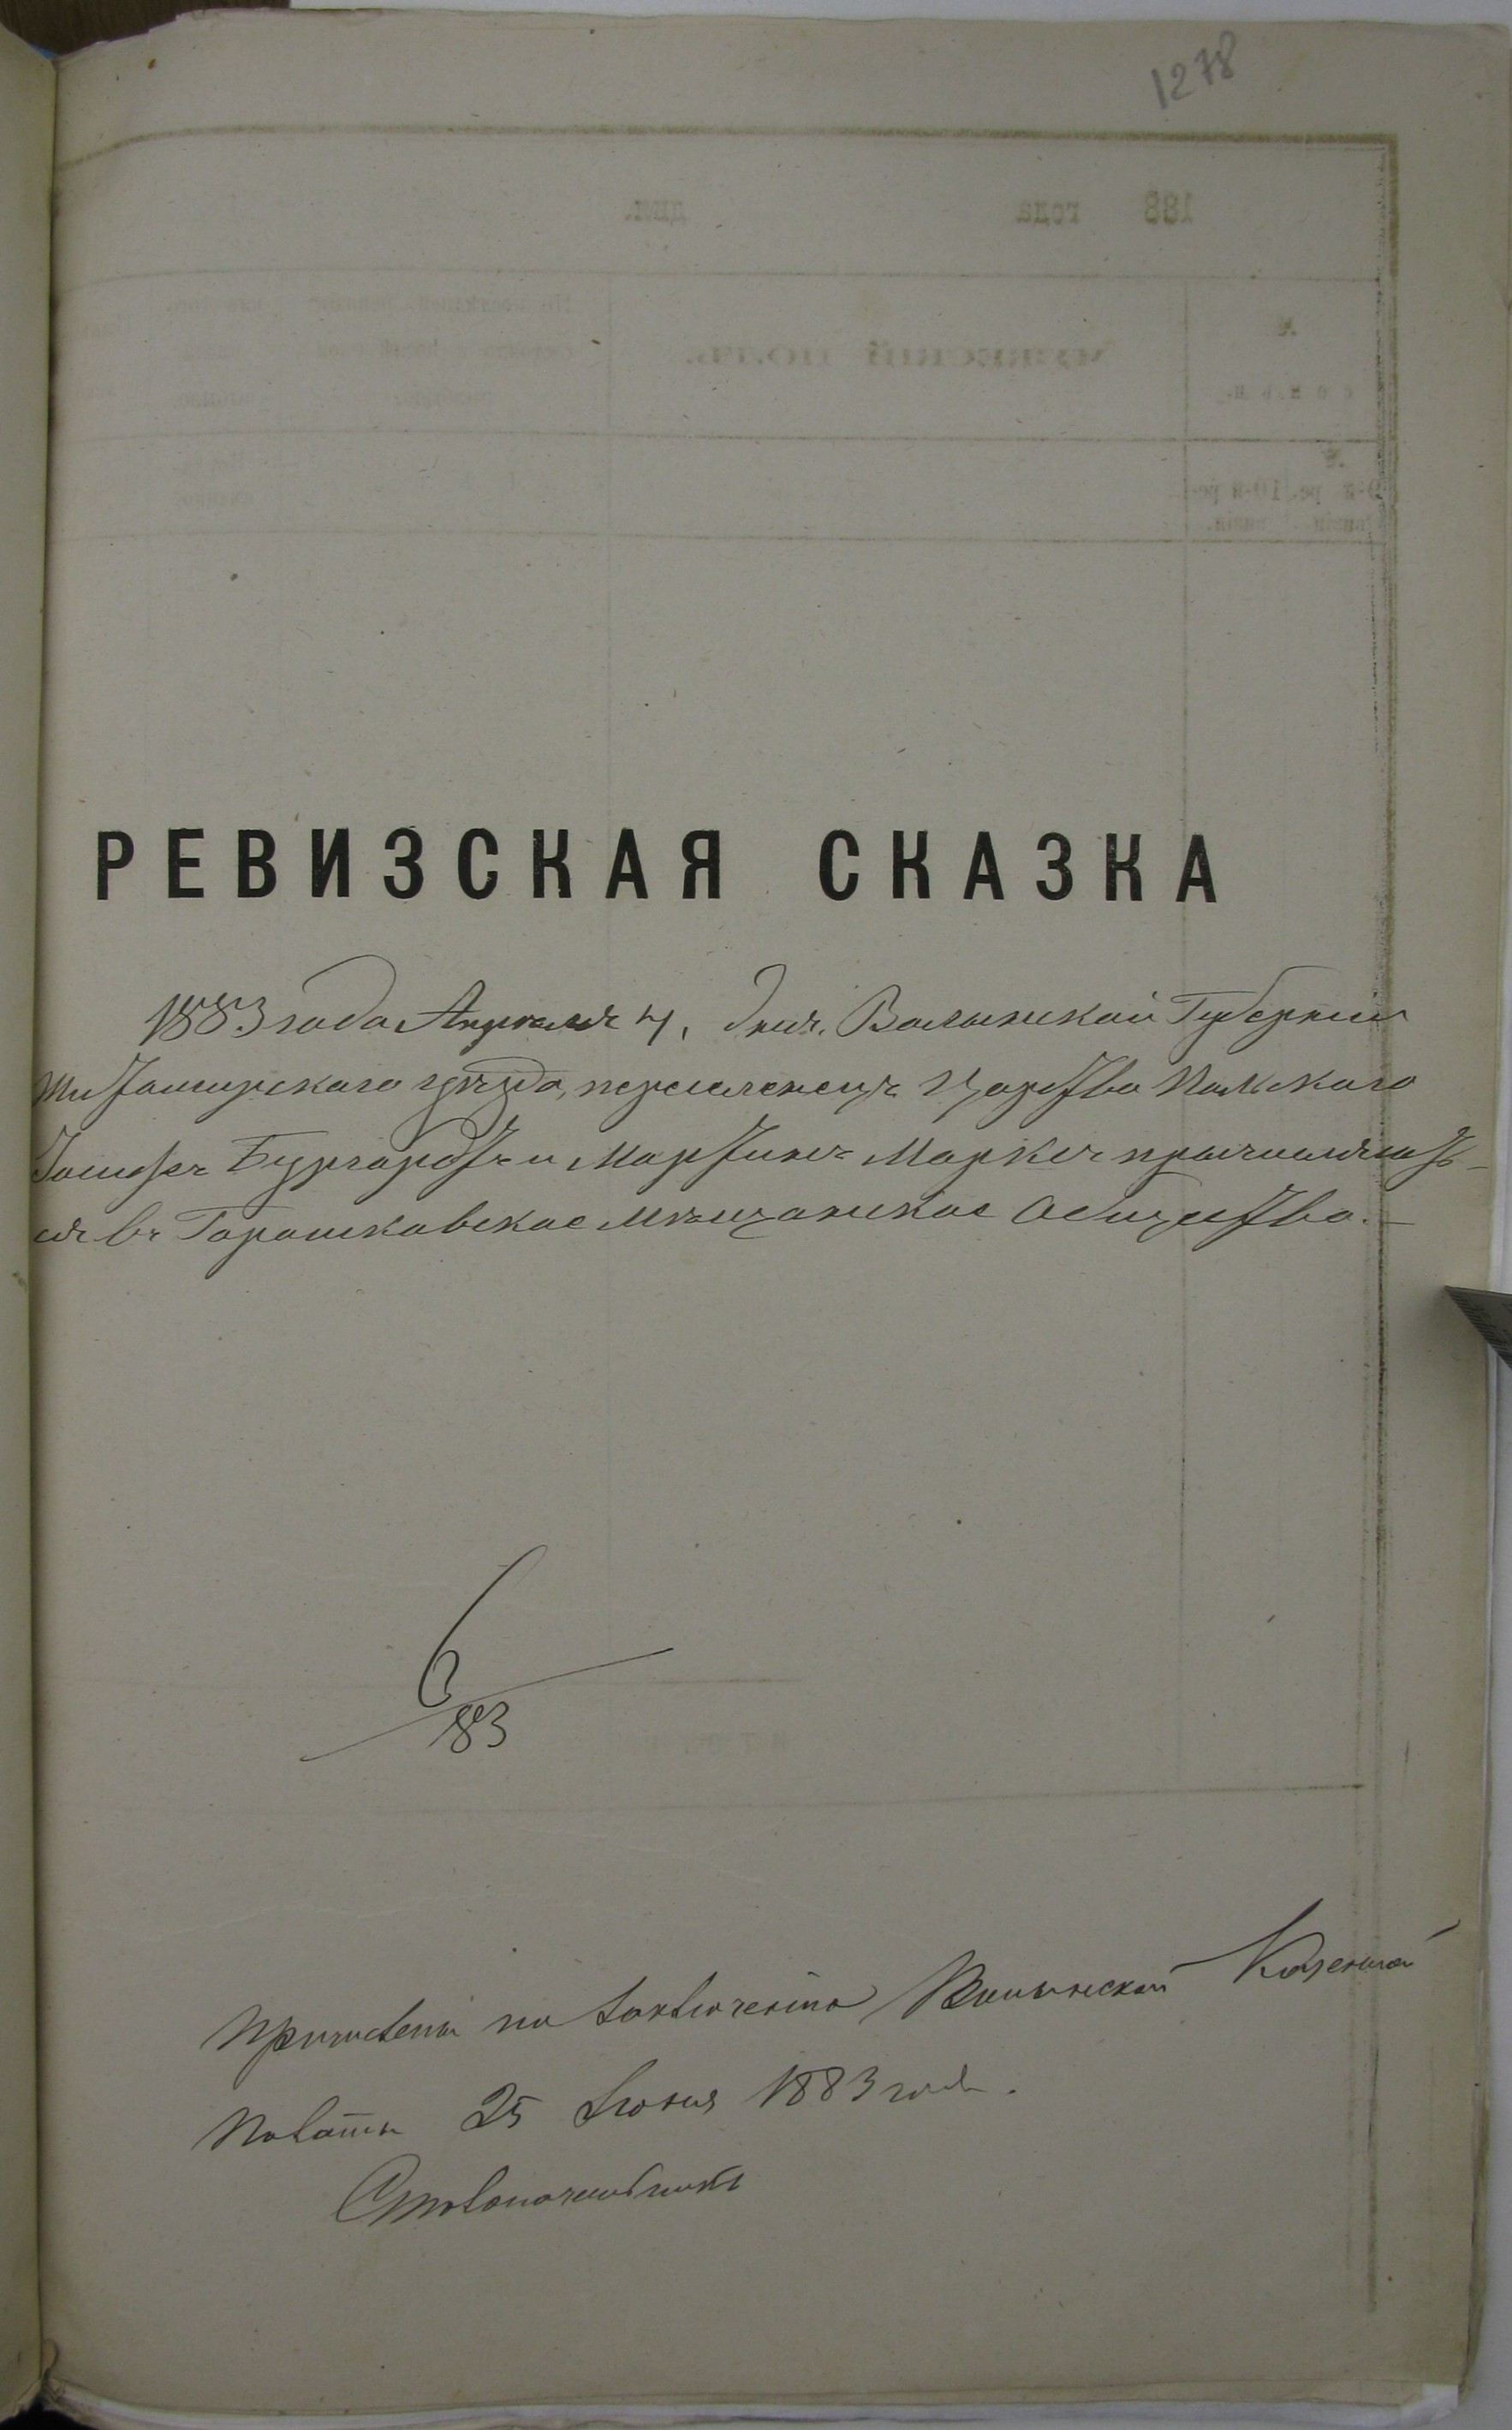 1278
РЕВИЗСКАЯ СКАЗКА
1883 года Апреля 4, дня. Волынской Губернии
Житомирскаго уѣзда, переселенецъ Царства Польскаго
Іосифъ Бургардтъ и Мартинъ Марксъ причисляють-
ся въ Горошковское Мѣщанское Общество.—
6
83
Причислены по заключенію Волынской Казенной
Палаты 25 Іюня 1883 года.
Столоначальникъ